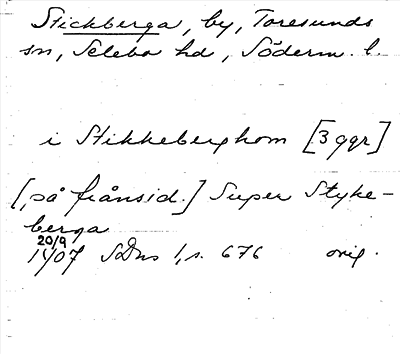 Stickberga, by, Toresunds
sn, Selebo hd, Söderm. l.
i Stikkeberghom [3 ggr]
[på frånsid.] Super Styke-
berga
20/9
1407 SDns 1, s. 676 orig.